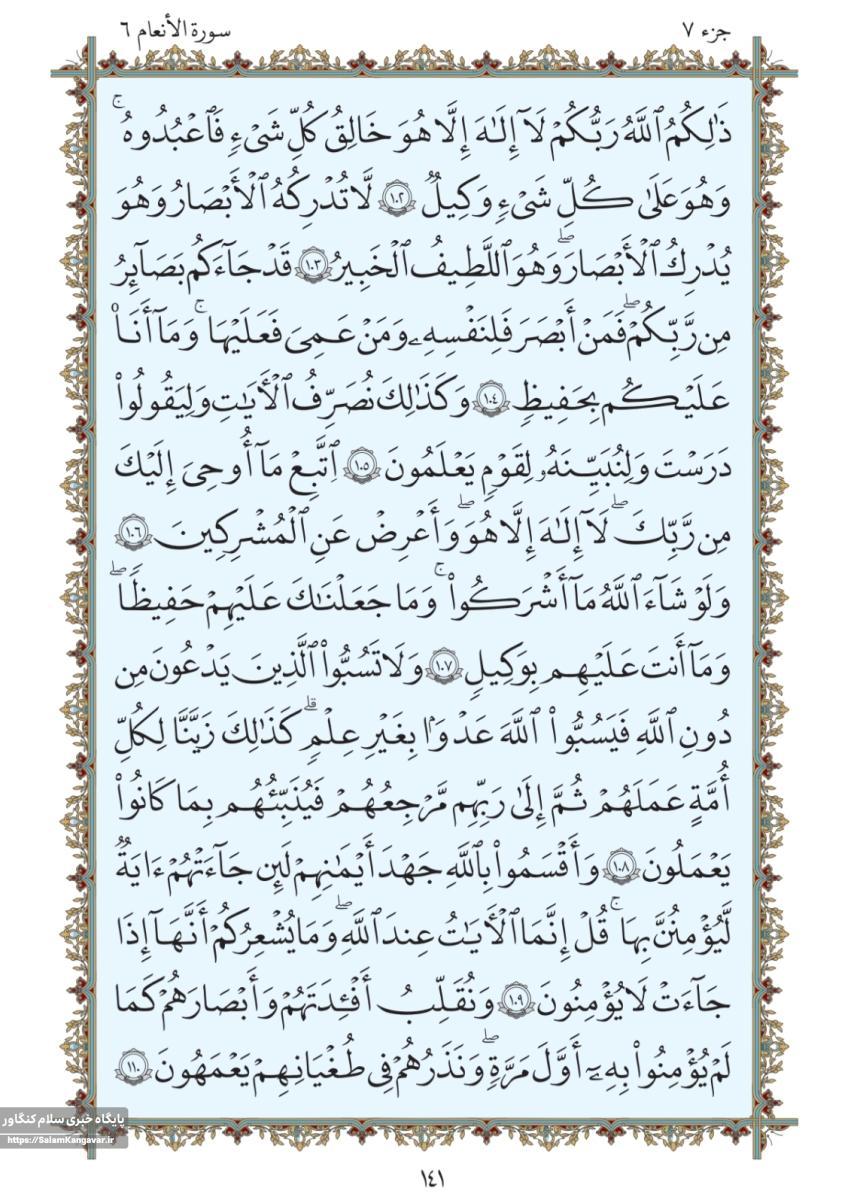 جزء ٧
سورة الأنعام ٦
ذَٰلِكُمُ ٱللَّهُ رَبُّكُمْ لَآ إِلَٰهَ إِلَّا هُوَ خَالِقُ كُلِّ شَىْءٍ فَٱعْبُدُوهُ ۚ
وَهُوَ عَلَىٰ كُلِّ شَىْءٍ وَكِيلٌ ١٠٢ لَّا تُدْرِكُهُ ٱلْأَبْصَارُ وَهُوَ
يُدْرِكُ ٱلْأَبْصَارَ ۖ وَهُوَ ٱللَّطِيفُ ٱلْخَبِيرُ ١٠٣ قَدْ جَآءَكُم بَصَآئِرُ
مِن رَّبِّكُمْ ۖ فَمَنْ أَبْصَرَ فَلِنَفْسِهِۦ وَمَنْ عَمِىَ فَعَلَيْهَا ۚ وَمَآ أَنَا۠
عَلَيْكُم بِحَفِيظٍ ١٠٤ وَكَذَٰلِكَ نُصَرِّفُ ٱلْأَيَٰتِ وَلِيَقُولُوا۟
دَرَسْتَ وَلِنُبَيِّنَهُۥ لِقَوْمٍ يَعْلَمُونَ ١٠٥ ٱتَّبِعْ مَآ أُوحِىَ إِلَيْكَ
مِن رَّبِّكَ ۖ لَآ إِلَٰهَ إِلَّا هُوَ ۖ وَأَعْرِضْ عَنِ ٱلْمُشْرِكِينَ ١٠٦
وَلَوْ شَآءَ ٱللَّهُ مَآ أَشْرَكُوا۟ ۚ وَمَا جَعَلْنَٰكَ عَلَيْهِمْ حَفِيظًا ۖ
وَمَآ أَنتَ عَلَيْهِم بِوَكِيلٍ ١٠٧ وَلَا تَسُبُّوا۟ ٱلَّذِينَ يَدْعُونَ مِن
دُونِ ٱللَّهِ فَيَسُبُّوا۟ ٱللَّهَ عَدْوًۢا بِغَيْرِ عِلْمٍ ۗ كَذَٰلِكَ زَيَّنَّا لِكُلِّ
أُمَّةٍ عَمَلَهُمْ ثُمَّ إِلَىٰ رَبِّهِم مَّرْجِعُهُمْ فَيُنَبِّئُهُم بِمَا كَانُوا۟
يَعْمَلُونَ ١٠٨ وَأَقْسَمُوا۟ بِٱللَّهِ جَهْدَ أَيْمَٰنِهِمْ لَئِن جَآءَتْهُمْ ءَايَةٌ
لَّيُؤْمِنُنَّ بِهَا ۚ قُلْ إِنَّمَا ٱلْأَيَٰتُ عِندَ ٱللَّهِ ۖ وَمَا يُشْعِرُكُمْ أَنَّهَآ إِذَا
جَآءَتْ لَا يُؤْمِنُونَ ١٠٩ وَنُقَلِّبُ أَفْـِٔدَتَهُمْ وَأَبْصَارَهُمْ كَمَا
لَمْ يُؤْمِنُوا۟ بِهِۦٓ أَوَّلَ مَرَّةٍ ۖ وَنَذَرُهُمْ فِى طُغْيَانِهِمْ يَعْمَهُونَ ١١٠
پایگاه خبری سلام کنگاور
https://SalamKangavar.ir
١٤١